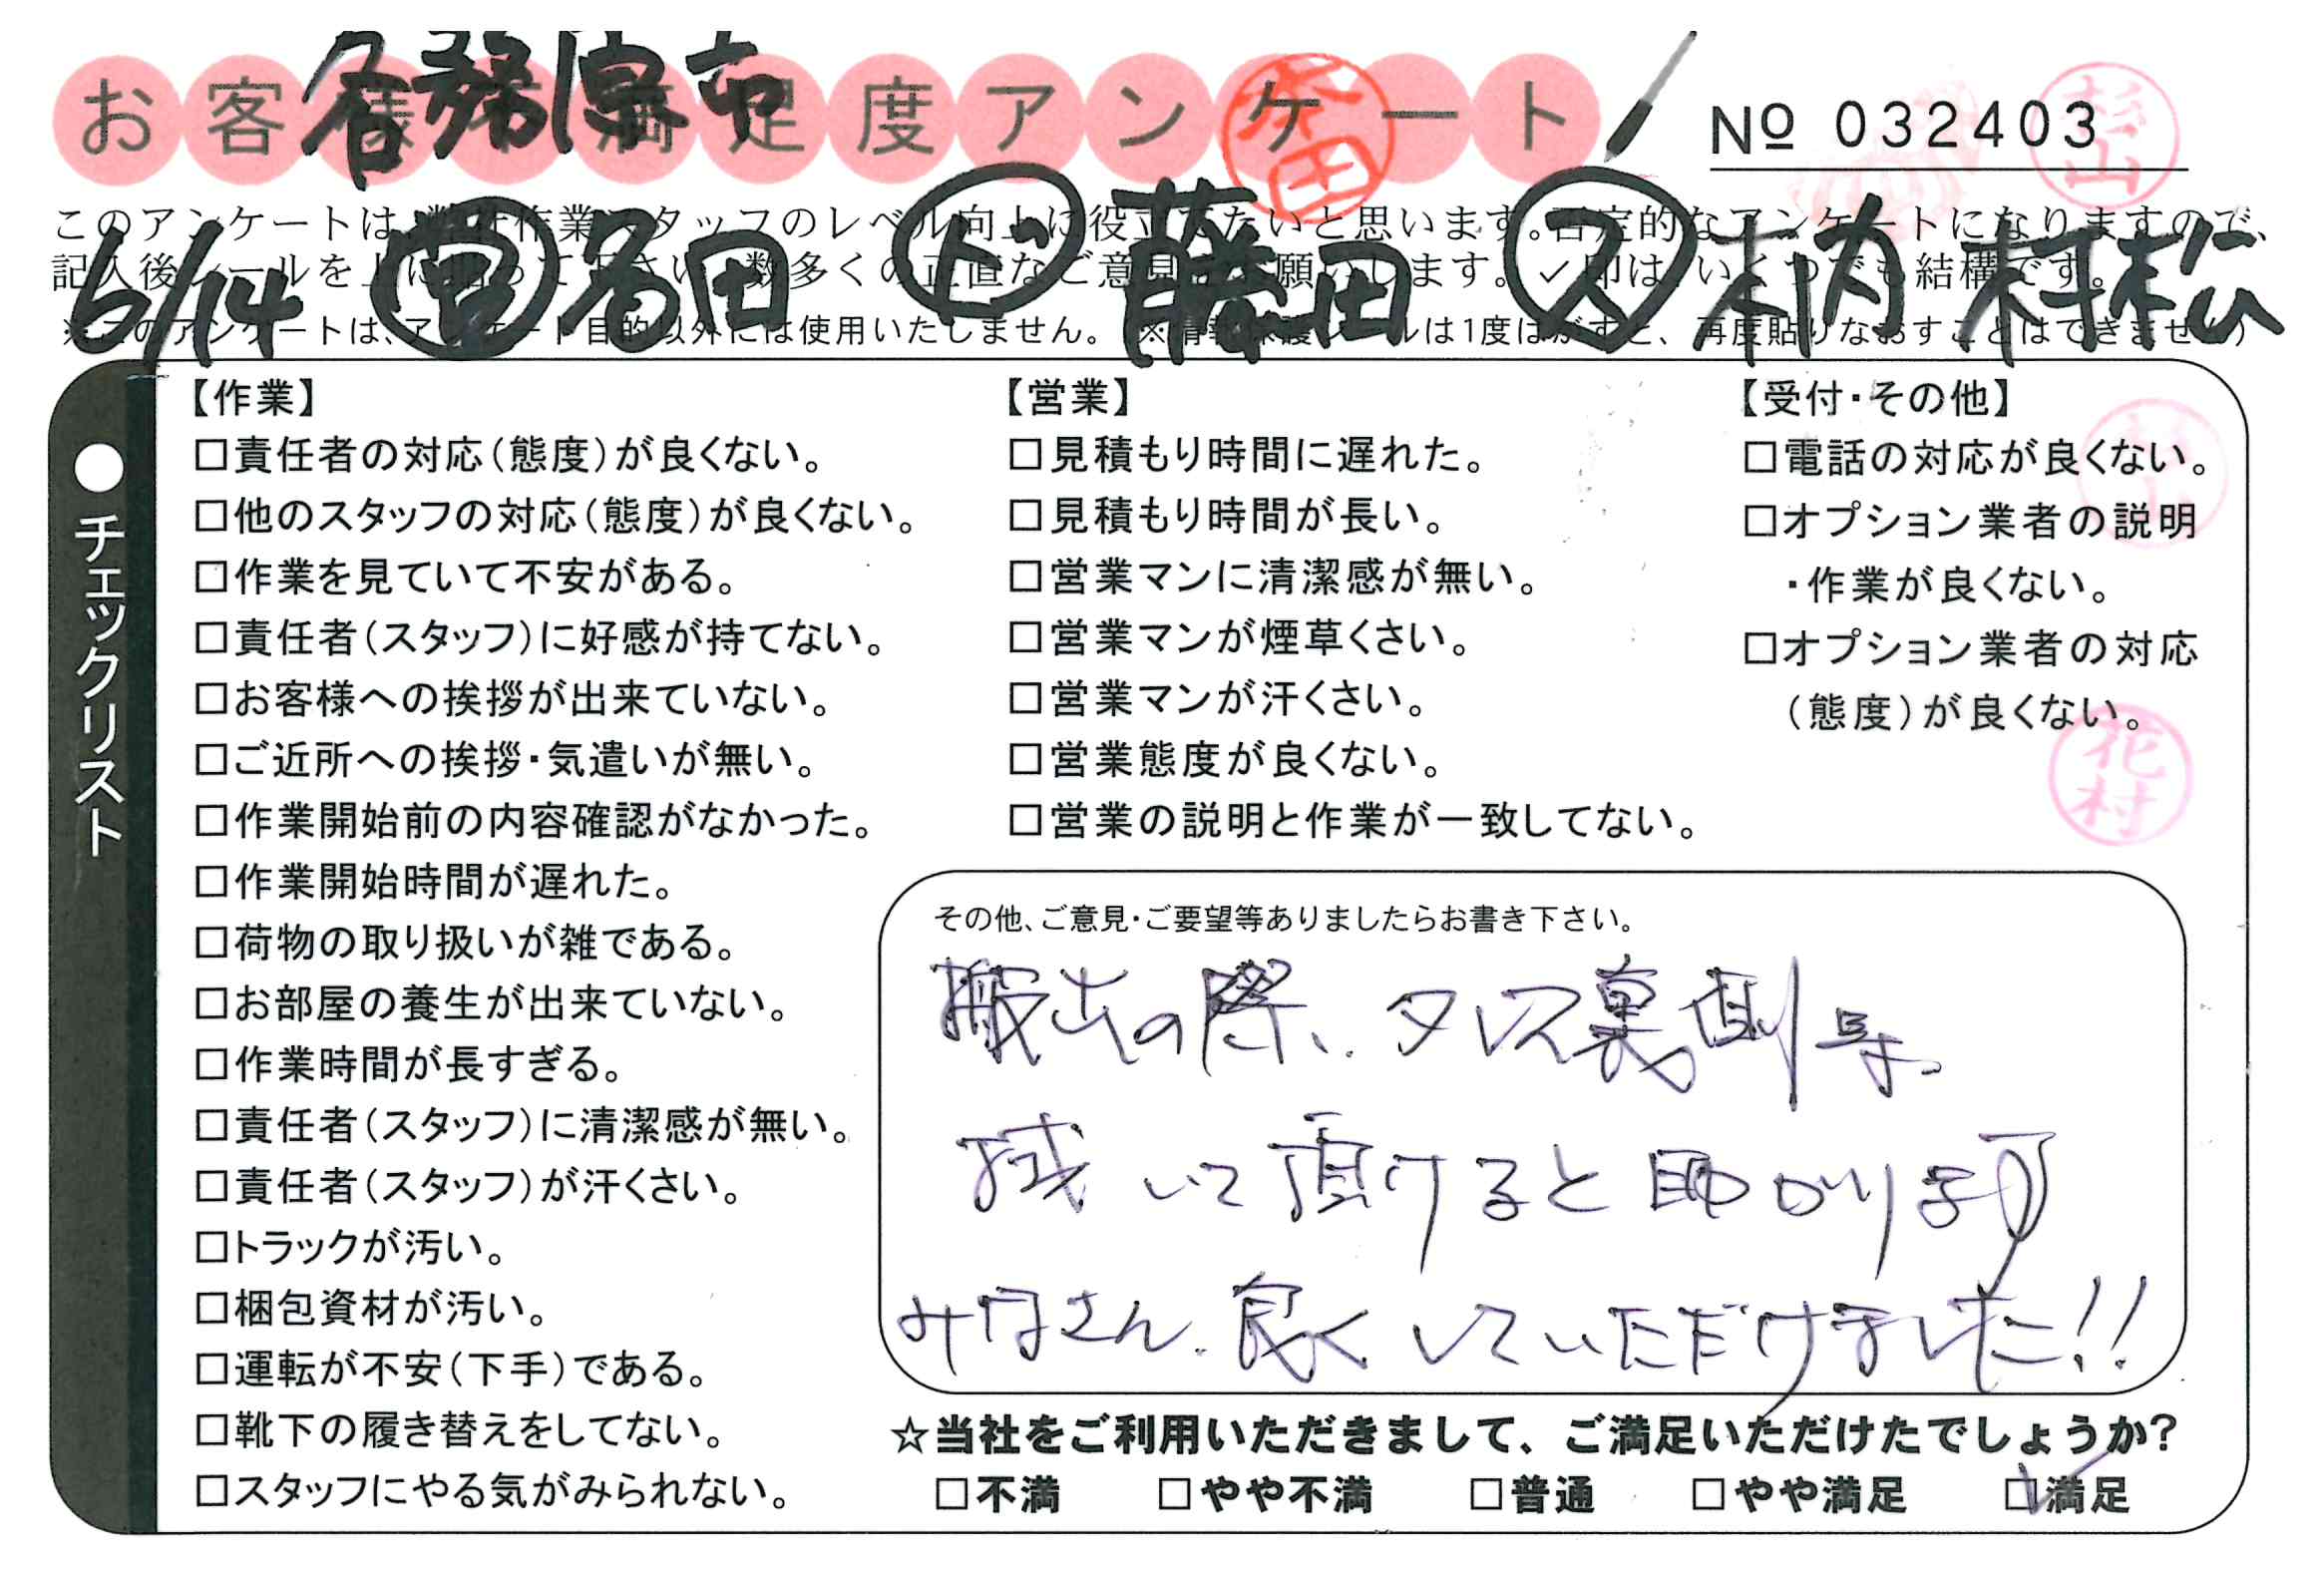 各務原市
お客様不満足度アンケート
№ 032403
杉山
本田
このアンケートは、弊社作業スタッフのレベル向上に役立てたいと思います。否定的なアンケートになりますので、
記入後シールを上に貼って下さい。数多くの正直なご意見をお願いします。✓印は、いくつでも結構です。
※このアンケートは、アンケート目的以外には使用いたしません。(※情報保護シールは1度はがすと、再度貼りなおすことはできません)
6/14 名田 ド 藤田 ス 柄 村松
●チェックリスト
【作業】
□責任者の対応(態度)が良くない。
□他のスタッフの対応(態度)が良くない。
□作業を見ていて不安がある。
□責任者(スタッフ)に好感が持てない。
□お客様への挨拶が出来ていない。
□ご近所への挨拶・気遣いが無い。
□作業開始前の内容確認がなかった。
□作業開始時間が遅れた。
□荷物の取り扱いが雑である。
□お部屋の養生が出来ていない。
□作業時間が長すぎる。
□責任者(スタッフ)に清潔感が無い。
□責任者(スタッフ)が汗くさい。
□トラックが汚い。
□梱包資材が汚い。
□運転が不安(下手)である。
□靴下の履き替えをしてない。
□スタッフにやる気がみられない。
【営業】
□見積もり時間に遅れた。
□見積もり時間が長い。
□営業マンに清潔感が無い。
□営業マンが煙草くさい。
□営業マンが汗くさい。
□営業態度が良くない。
□営業の説明と作業が一致してない。
【受付・その他】
□電話の対応が良くない。
□オプション業者の説明
・作業が良くない。
□オプション業者の対応
(態度)が良くない。
花村
その他、ご意見・ご要望等ありましたらお書き下さい。
搬出の際、タンス裏側等
拭いて頂けると助かります
みなさん良くしていただけました!!
☆当社をご利用いただきまして、ご満足いただけたでしょうか?
□不満 □やや不満 □普通 □やや満足 ☑満足